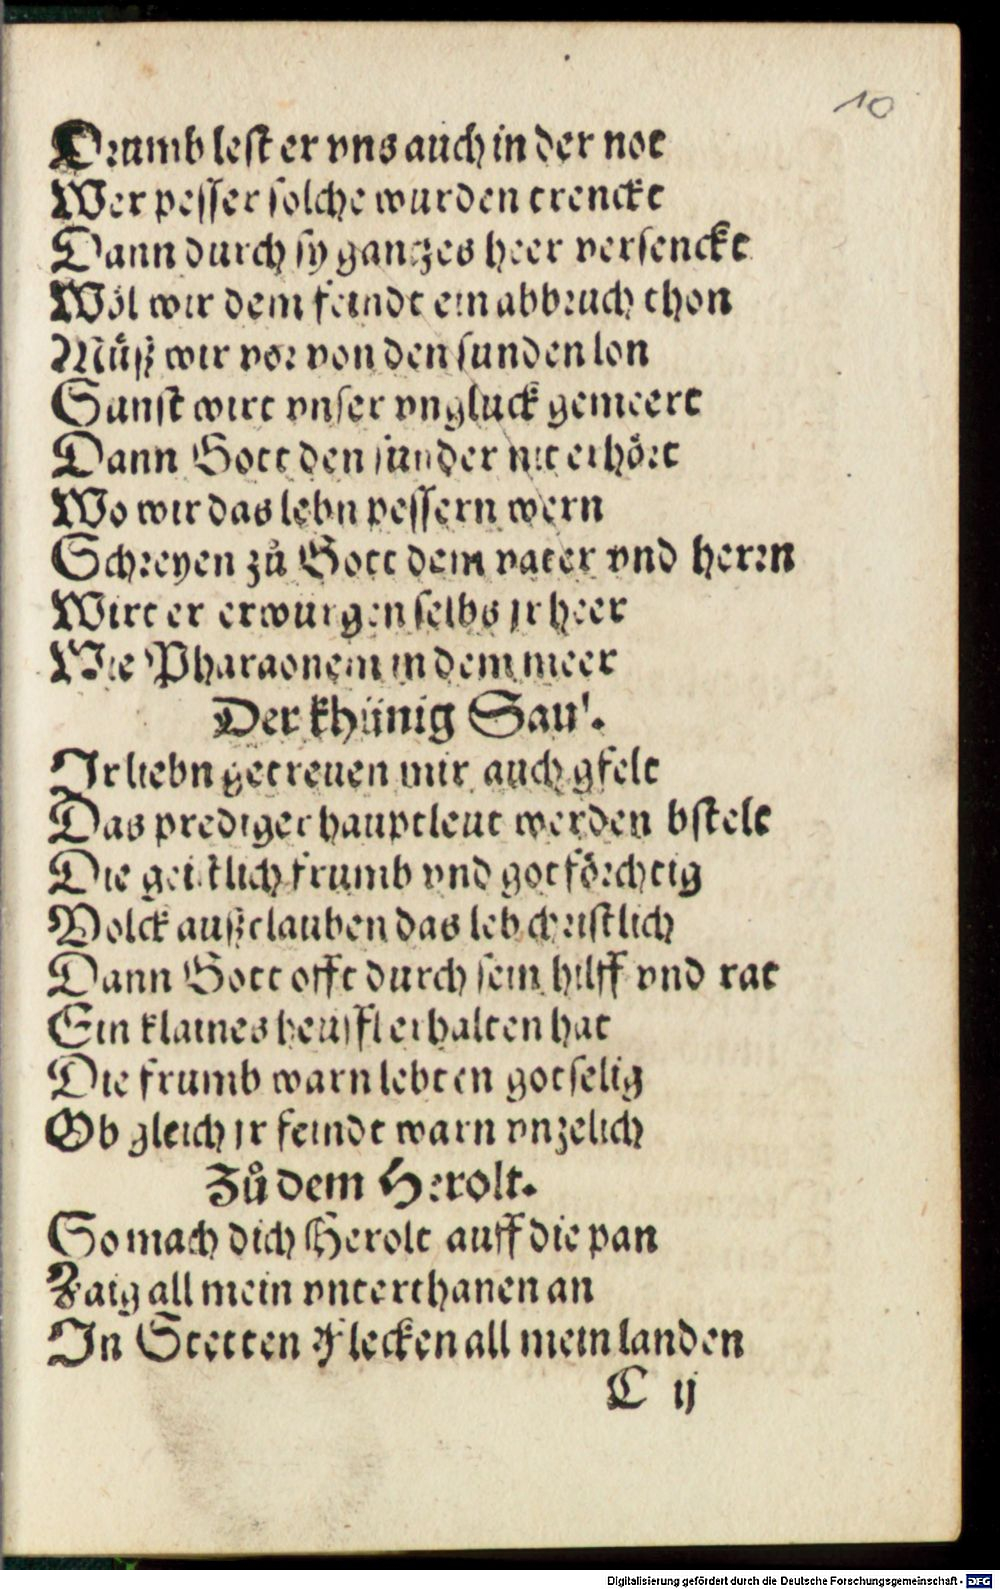 10
Drumb lest er vns auch in der not
Wer pesser solche wurden trenckt
Dann durch sy gantzes heer versenckt
Wöl wir dem feindt ein abbruch thon
Müß wir vor von den sunden lon
Sunst wirt vnser vngluck gemeert
Dann Gott den sunder nit erhört
Wo wir das lebn pessern wern
Schreyen zů Gott dem vater vnd herrn
Wirt er erwurgen selbs jr heer
Wie Pharaonem in dem meer
Der khünig Saul.
Ir liebn getreuen mir auch gfelt
Das prediger hauptleut werden bstelt
Die geistlich frumb vnd gotförchtig
Volck außclauben das leb christlich
Dann Gott offt durch sein hilff vnd rat
Ein klaines heuffl erhalten hat
Die frumb warn lebten gotselig
Ob gleich jr feindt warn vnzelich
Zů dem Herolt.
So mach dich Herolt auff die pan
Zaig all mein vnterthanen an
In Stetten Flecken all mein landen
C ij
Digitalisierung gefördert durch die Deutsche Forschungsgemeinschaft - DFG